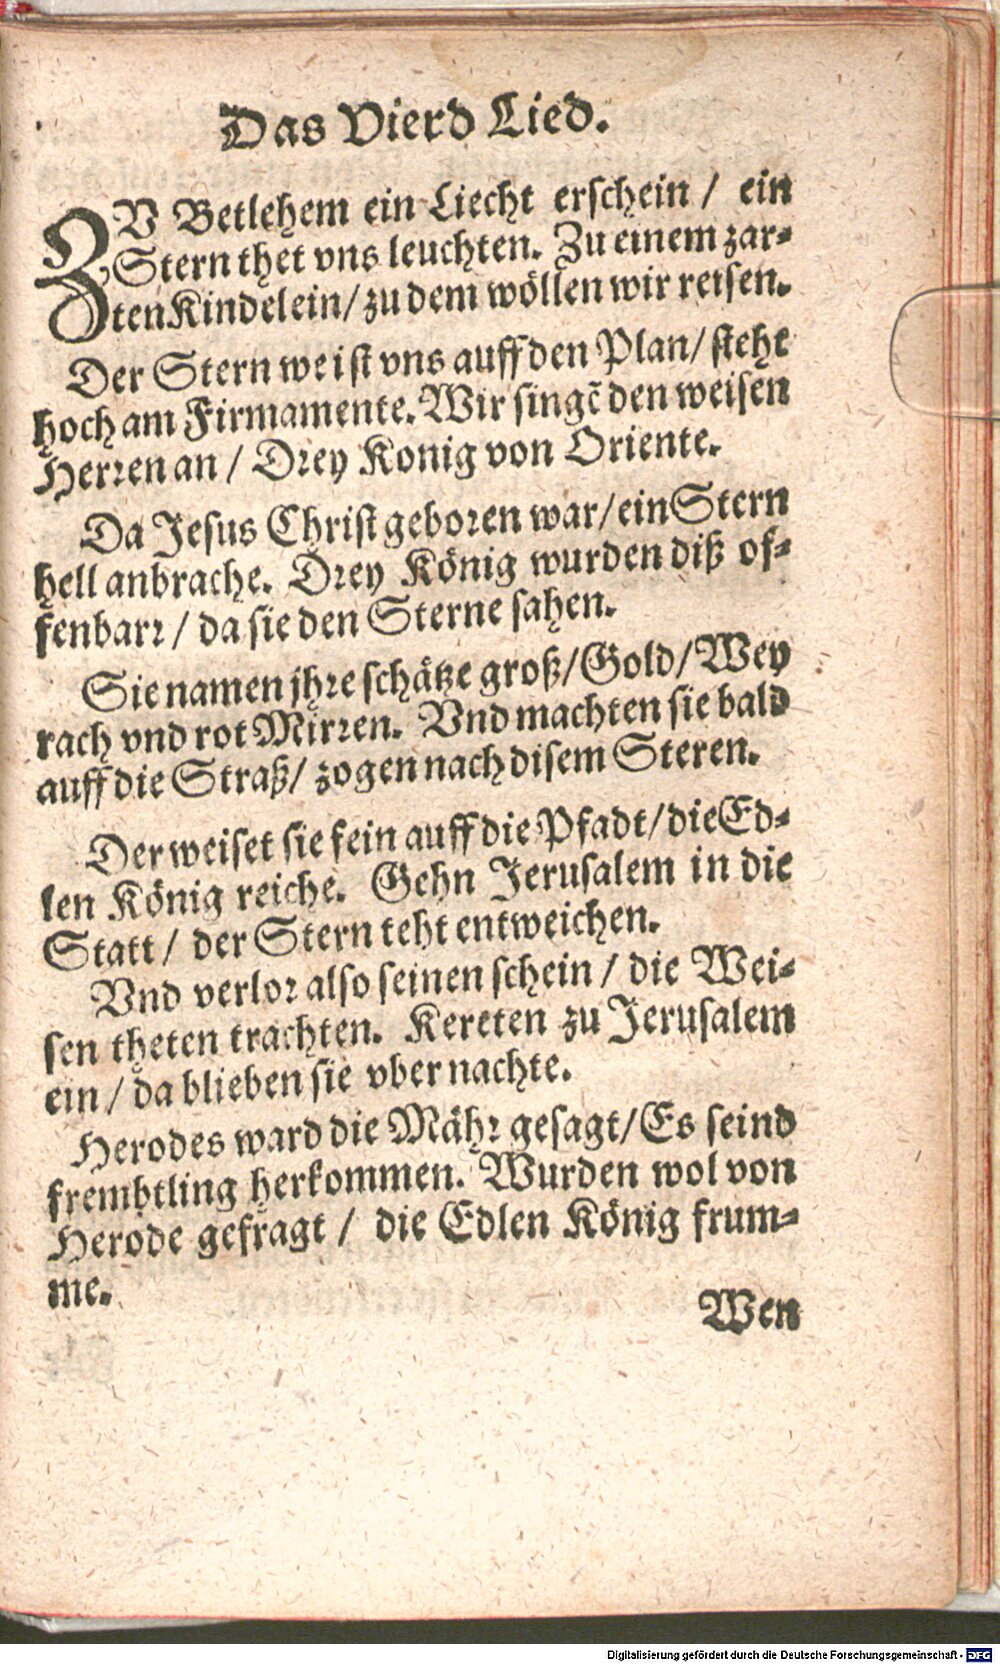 Das Vierd Lied.
ZV Betlehem ein Liecht erschein / ein
Stern thet vns leuchten. Zu einem zar-
ten Kindelein / zu dem wöllen wir reisen.
Der Stern weist vns auff den Plan / steht
hoch am Firmamente. Wir singē den weisen
Herren an / Drey Konig von Oriente.
Da Jesus Christ geboren war / ein Stern
hell anbrache. Drey König wurden diß of-
fenbarr / da sie den Sterne sahen.
Sie namen jhre schätze groß / Gold / Wey
rach vnd rot Mirren. Vnd machten sie bald
auff die Straß / zogen nach disem Steren.
Der weiset sie fein auff die Pfadt / die Ed-
len König reiche. Gehn Jerusalem in die
Statt / der Stern teht entweichen.
Vnd verlor also seinen schein / die Wei-
sen theten trachten. Kereten zu Jerusalem
ein / da blieben sie vber nachte.
Herodes ward die Mähr gesagt / Es seind
frembtling herkommen. Wurden wol von
Herode gefragt / die Edlen König frum-
me.
Wen
Digitalisierung gefördert durch die Deutsche Forschungsgemeinschaft - DFG